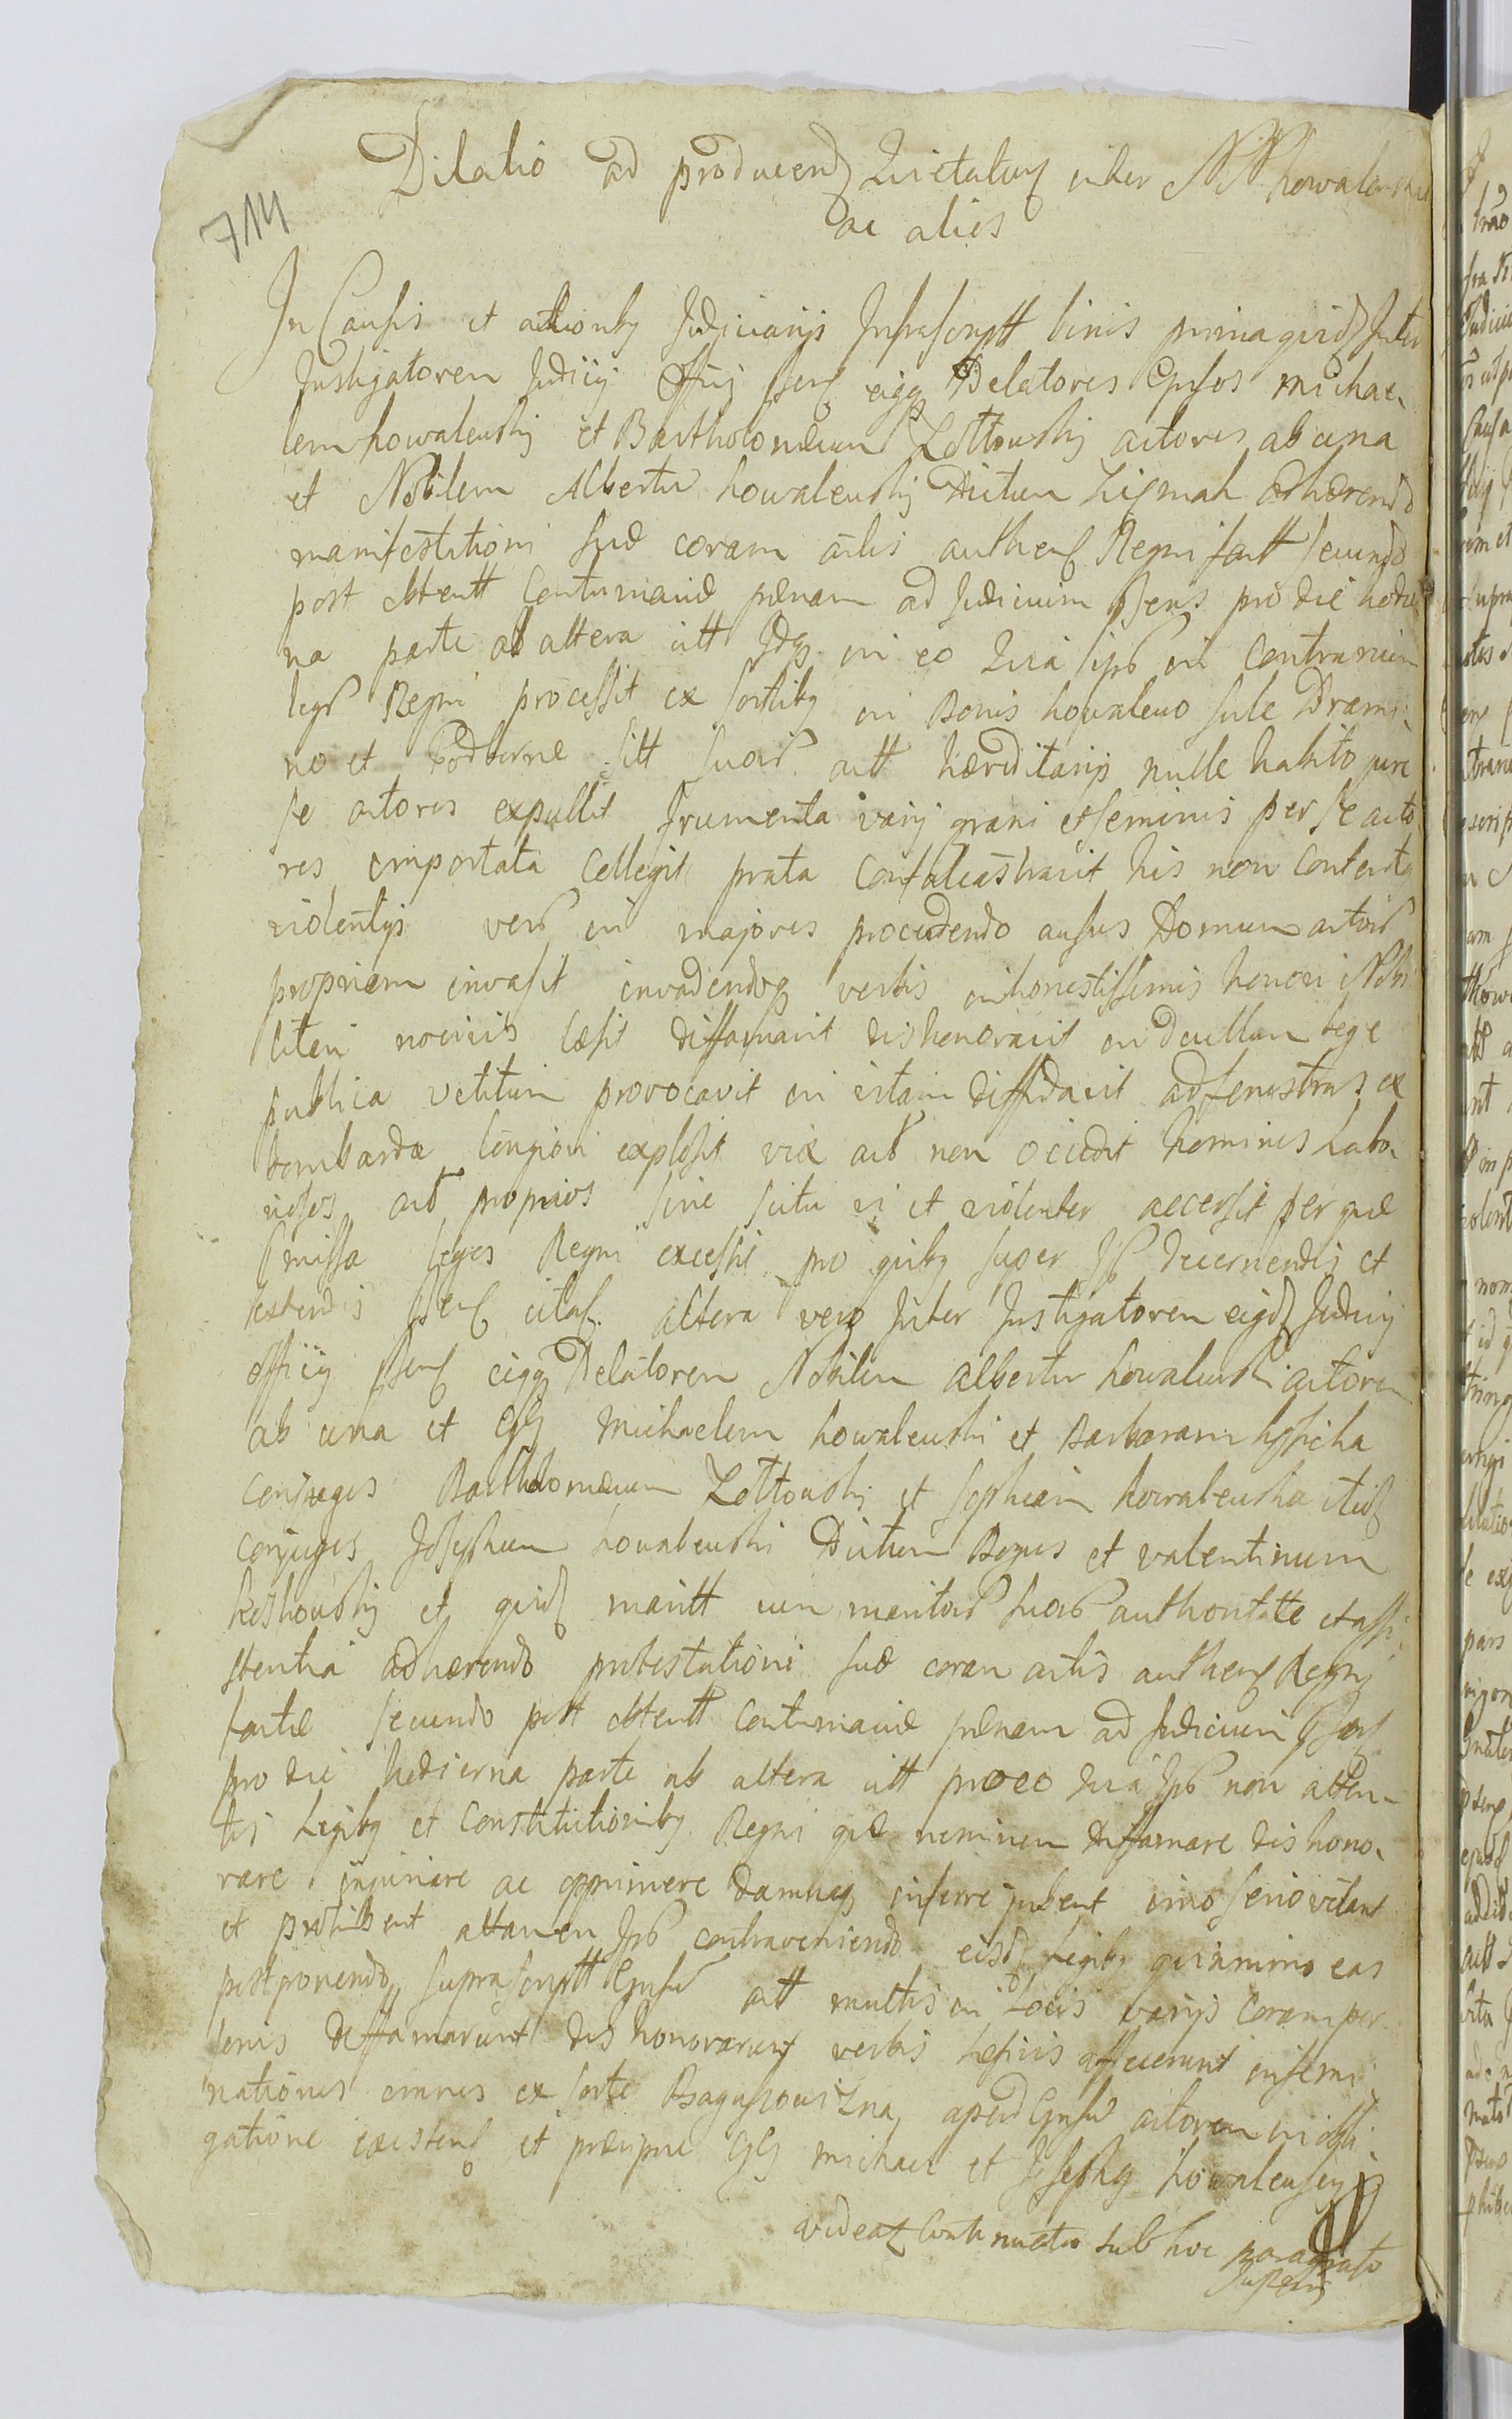 Dilatio ad producend Quietatus inter NN Kowalewskie
ac alios
714
In Causis et actionbg Judiciarijs Infrascriptt binis prima quid Inter
Instigatorem Judicij Officij psens eigq Delatores Gnsos Micha-
lem Kowalewskij et Bartholomæum Zottowskij actores ab una
et Nobilem Albertu Kowalewskij Dictum Zigmak adhærendo
manifestationi suæ coram actis authens Regni factt secundo
post obtentt Contumaciæ pænam ad Judicium psens pro die hodier
na parte ab altera citt Idq in eo Quia ipse in Contrarium
legu Regni processit ex sortibg in Bonis Kowalewo sule Dræmi-
no et Podborne sitt suor actt hæreditarijs nullo habito jure
se actores expullit frumenta varij grani et seminis per se acto
res importata Collegit prata Confalcastravit his non Contentg
violentijs vero in majores procedendo ausus Domum actor
propriam invasit invadendoq verbis inhonestissimis honori Nobi
litari nocivis læsit diffamavit dishonoravit in duellum lege
publica vetitum provocavit in vitam diffidavit ad fenestras ex
bombarda longiori explosit vix act non occidit homines Labo-
riosos act proprios sine scitu vi et violenter accersit per quæ
pmissa leges Regni excessit pro quibg super Ips decernendis et
extendis psens citats altera vero Inter Instigatorem eigd Judicij
officij psens eigq Delatorem Nobilem Albertu Kowalewski actorem
ab una et GG Michaelem Kowalewski et Barbaram
Conjuges Bartholomæum Zottowskij et Sophiam Kowalewska itid
Conjuges Josephum Kowalewski Dictum Bogus et Valentinum
et quid maritt cum maritor suor authoritatte et assi-
stentia adhærendo protestationi suæ coram actis authens Regni
factæ secundo post obtentt Contumaciæ pænam ad Judicium psens
pro die hodierna parte ab altera citt pro eo Quia Ips non atten-
tis Legibg et Constitutionibg Regni quæ neminem diffamare dishono-
rare injuriare ac opprimere damnaq inferre jubent imo serio vetant
et prohibent attamen Ips contraveniendo eisd Legibg quinimo eas
postponendo suprascriptt Gnsu act multis in Locis varijs coram per-
sonis diffamarunt dishonorarunt verbis Lesivis affecerunt insemi
nationes omnes ex sorte apud Gnsu actorem in obli-
gatione existens et præcipue GG Michael et Josephg Kowalewscij
videatg Continuatio sub hoc paragrafo